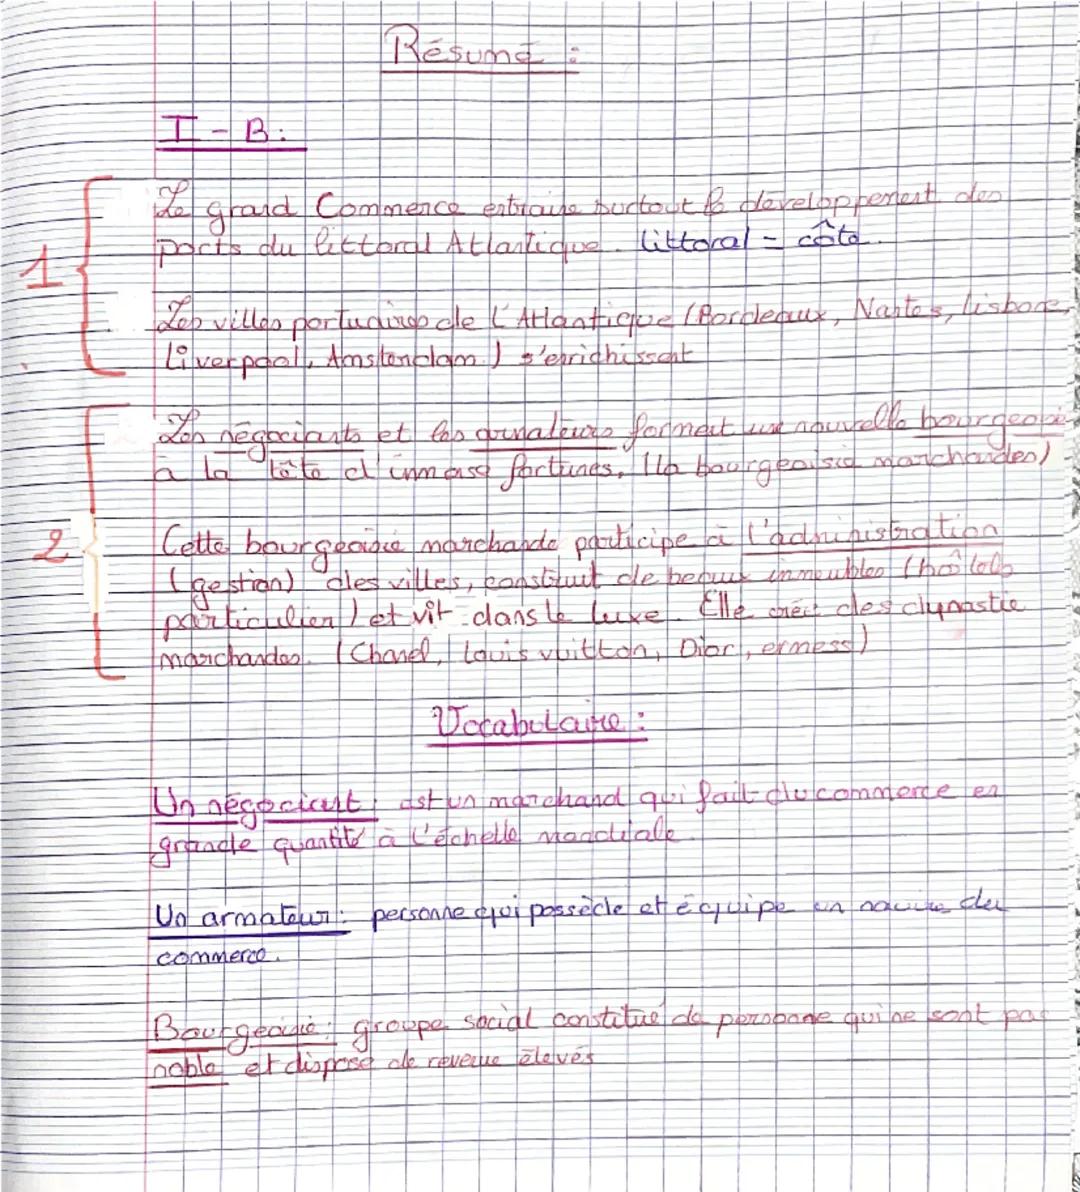 Résumé :
I - B :
Le grand Commerce entraine surtout le développement des
1
ports du littoral Atlantique. littoral = côte.
Les villes portuaires de l'Atlantique (Bordeaux, Nantes, lisbone,
Liverpool, Amsterdam) s'enrichissent
Les négociants et les armateurs forment une nouvelle bourgeoisie
à la tête d'immense fortunes, (la bourgeoisie marchandes)
2
Cette bourgeoisie marchande participe à l'administration
(gestion) des villes, construit de beaux immeubles (hôtels
particulier) et vit dans le luxe. Elle créé des dynastie
marchandes. (Chanel, Louis vuitton, Dior, ermess)
Vocabulaire :
Un négociant : est un marchand qui fait du commerce en
grande quantité à l'échelle mondiale.
Un armateur : personne qui possède et équipe un navire du
commerce.
Bourgeoisie : groupe social constitué de personne qui ne sont pas
noble et dispose de revenue élevés